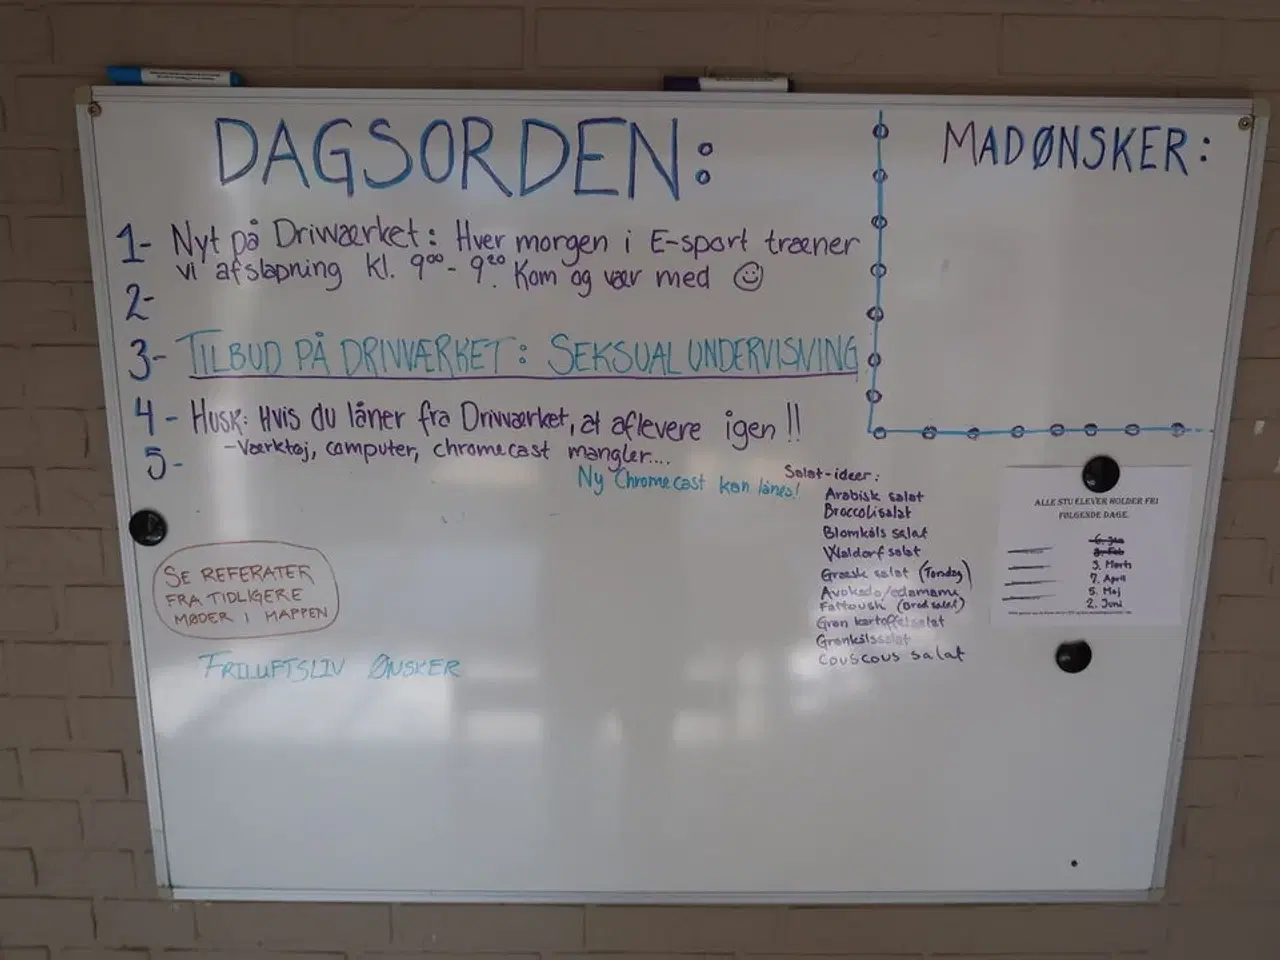 DAGSORDEN:
1- Nyt på Drivværket: Hver morgen i E-sport træner
vi afslapning Kl. 9⁰⁰ - 9²⁰. Kom og vær med ☺
2-
3- TILBUD PÅ DRIVVÆRKET: SEKSUALUNDERVISNING
4- HUSK: Hvis du låner fra Drivværket, at aflevere igen!!
- Værktøj, computer, chromecast mangler....
5-
Ny Chromecast kan lånes!
SE REFERATER
FRA TIDLIGERE
MØDER I MAPPEN
FRILUFTSLIV ØNSKER
MADØNSKER:
Salat-ideer:
Arabisk salat
Broccolisalat
Blomkåls salat
Waldorf salat
Græsk salat (Torsdag)
Avokado/edamame
Fattoush (brød salat)
Grøn kartoffelsalat
Grønkålssalat
Couscous salat
ALLE STU ELEVER HOLDER FRI
FØLGENDE DAGE.
6. Jan
3. Feb
3. Marts
7. April
5. Maj
2. Juni